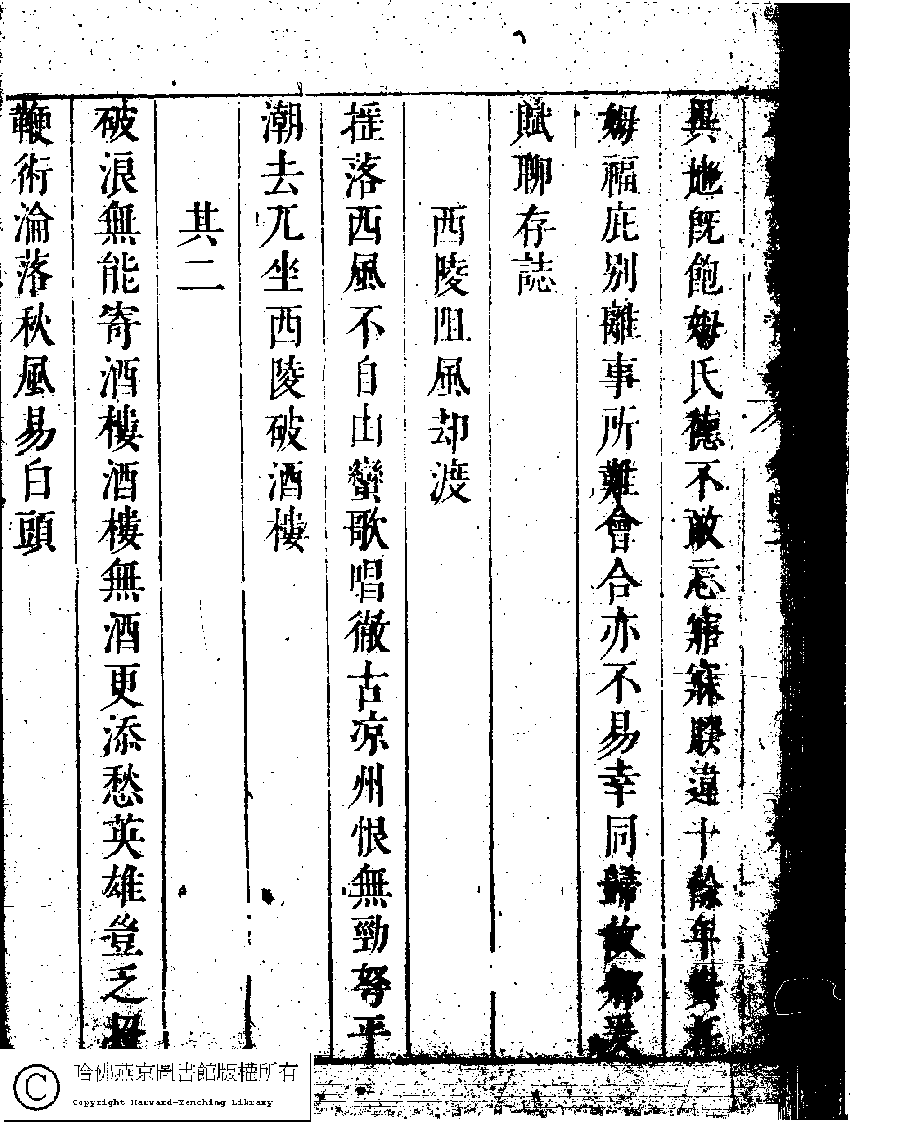 異地旣飽姆氏德不敢忘寤寐睽違十餘年實托
姆福庇別離事所難會合亦不易幸同歸故鄉爰
賦聊存誌
西陵阻風却渡
摧落西風不自由蠻歌唱徹古凉州恨無勁弩平
潮去兀坐西陵破酒樓
其二
破浪無能寄酒樓酒樓無酒更添愁英雄豈乏
鞭術淪落秋風易白頭
哈佛燕京圖書館版權所有
Copyright Harvard-Yenching Library